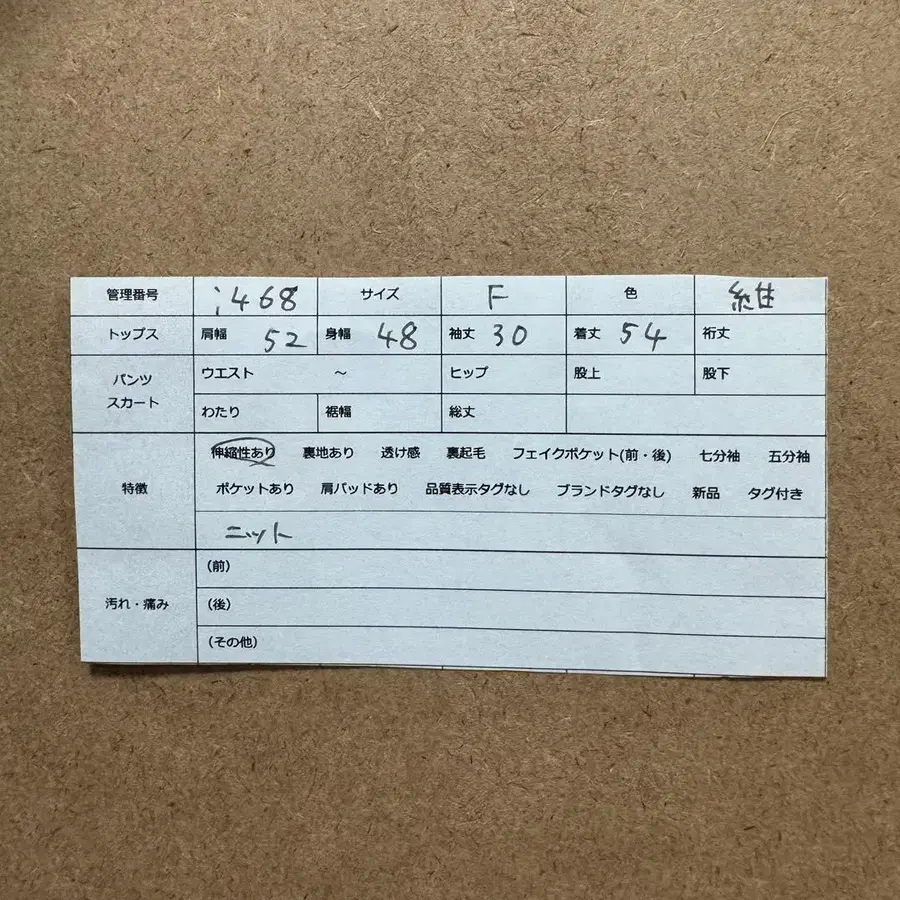 管理番号 i468 サイズ F 色 紺
トップス 肩幅 52 身幅 48 袖丈 30 着丈 54 裄丈
パンツ スカート ウエスト ～ ヒップ 股上 股下
わたり 裾幅 総丈
特徴 伸縮性あり 裏地あり 透け感 裏起毛 フェイクポケット(前・後) 七分袖 五分袖
ポケットあり 肩パッドあり 品質表示タグなし ブランドタグなし 新品 タグ付き
ニット
汚れ・痛み (前)
(後)
(その他)